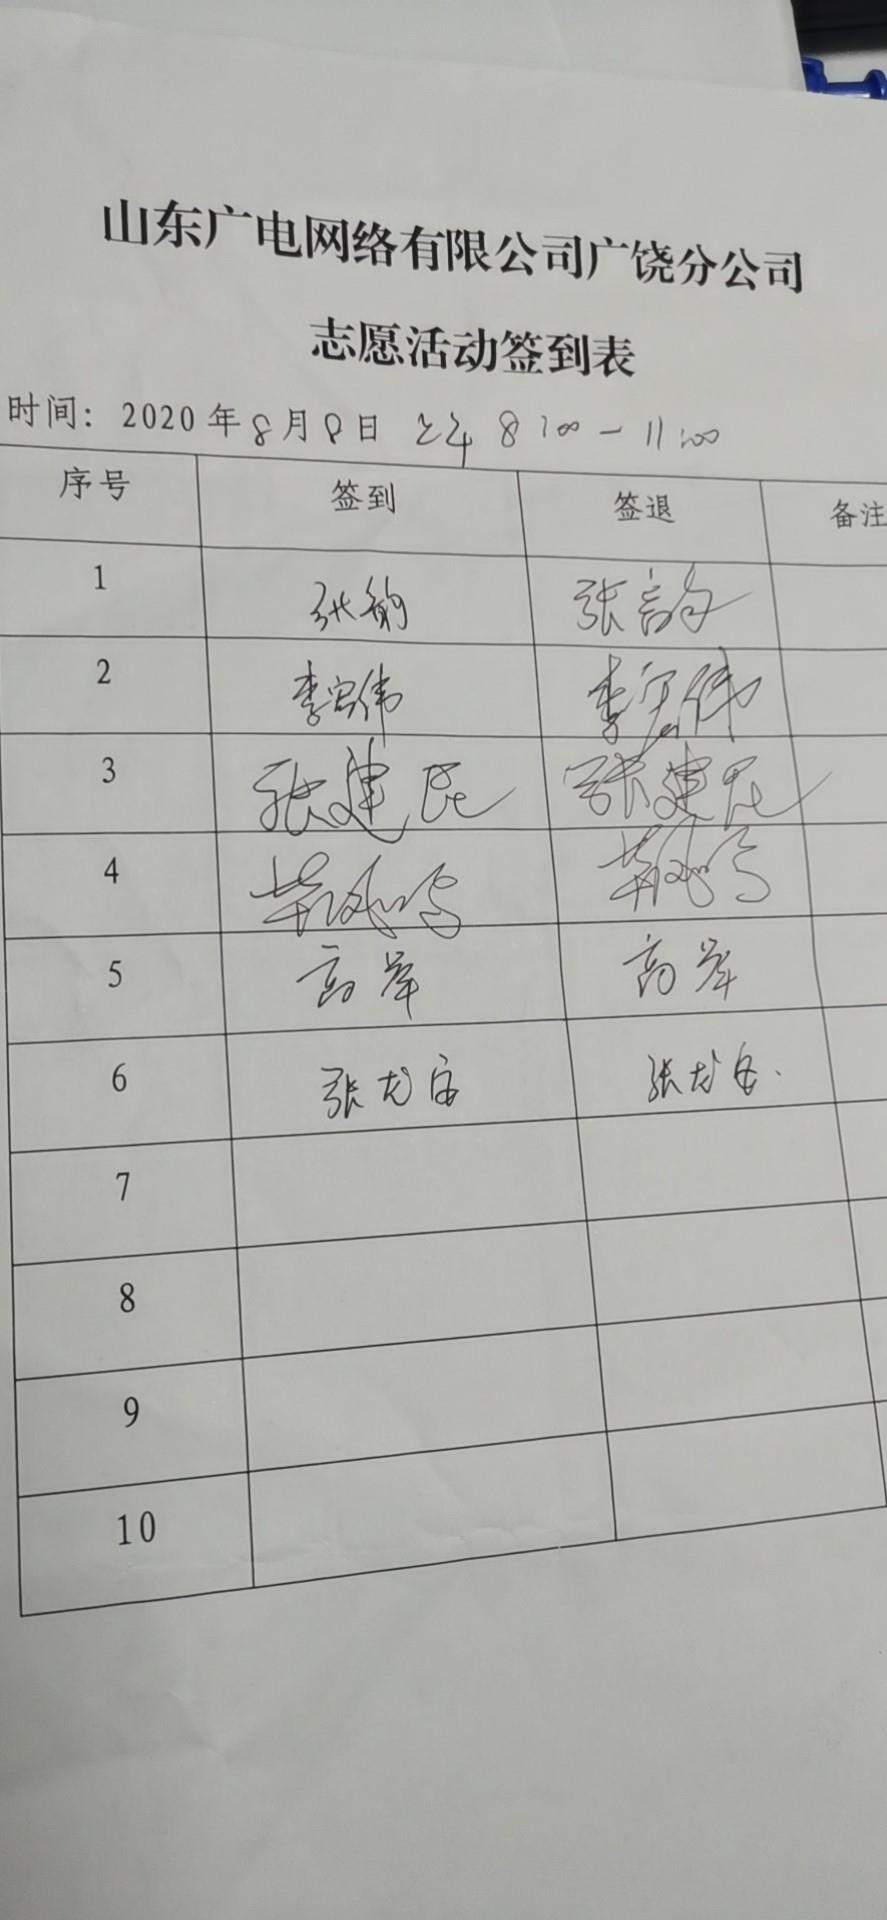 山东广电网络有限公司广饶分公司
志愿活动签到表
时间: 2020年8月8日 上午 8:00-11:00
序号 签到 签退 备注
1 张韵 张韵
2 李宏伟 李宏伟
3 张建民 张建民
4
5 高举 高举
6 张龙宙
7
8
9
10